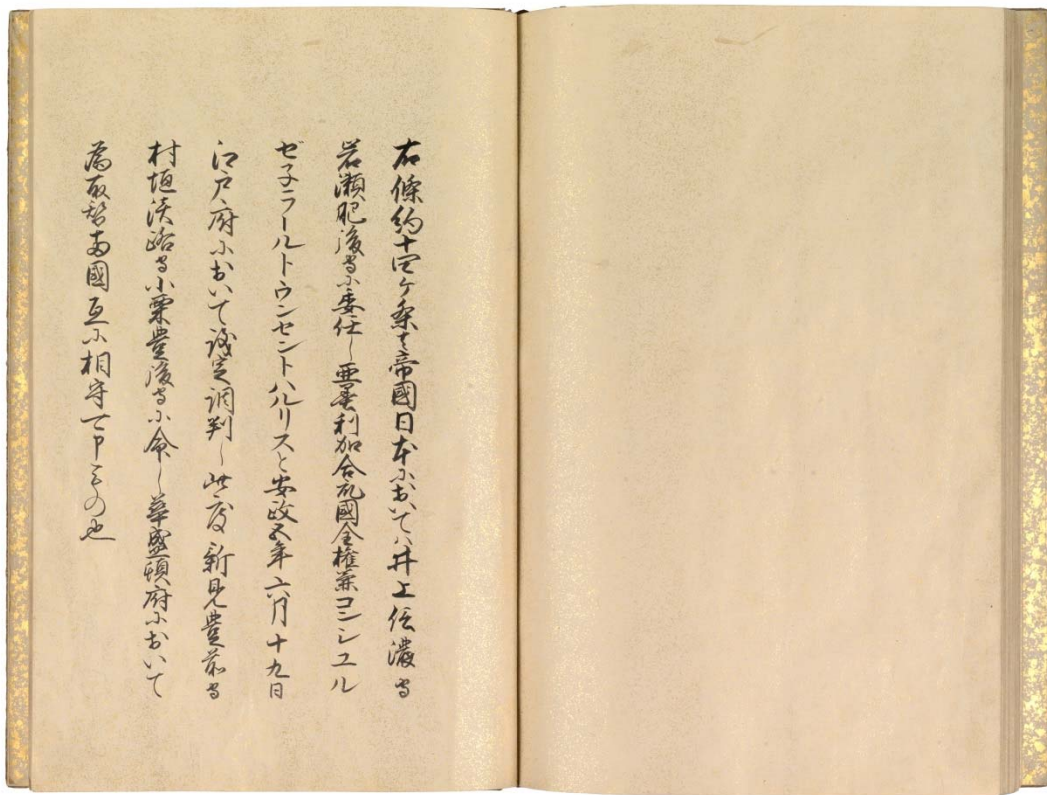 右條約十四ケ条者帝國日本において八井上信濃守
岩瀬肥後守に委任し亜墨利加合衆國全権兼コンシュル
ゼ子ラールトウンセントハルリスと安政五年六月十九日
江戸府において議定調判し此度新見豊前守
村垣淡路守小栗豊後守に命し華盛頓府において
為取替両國互に相守可申もの也